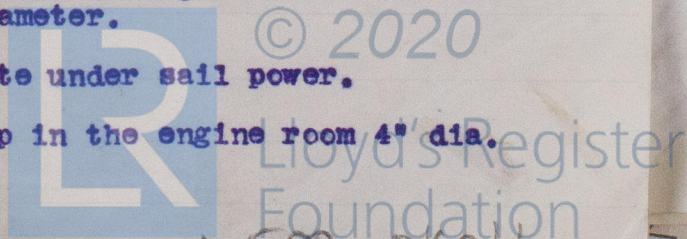 ameter.
© 2020
te under sail power.
p in the engine room 4" dia.
Lloyd's Register
Foundation